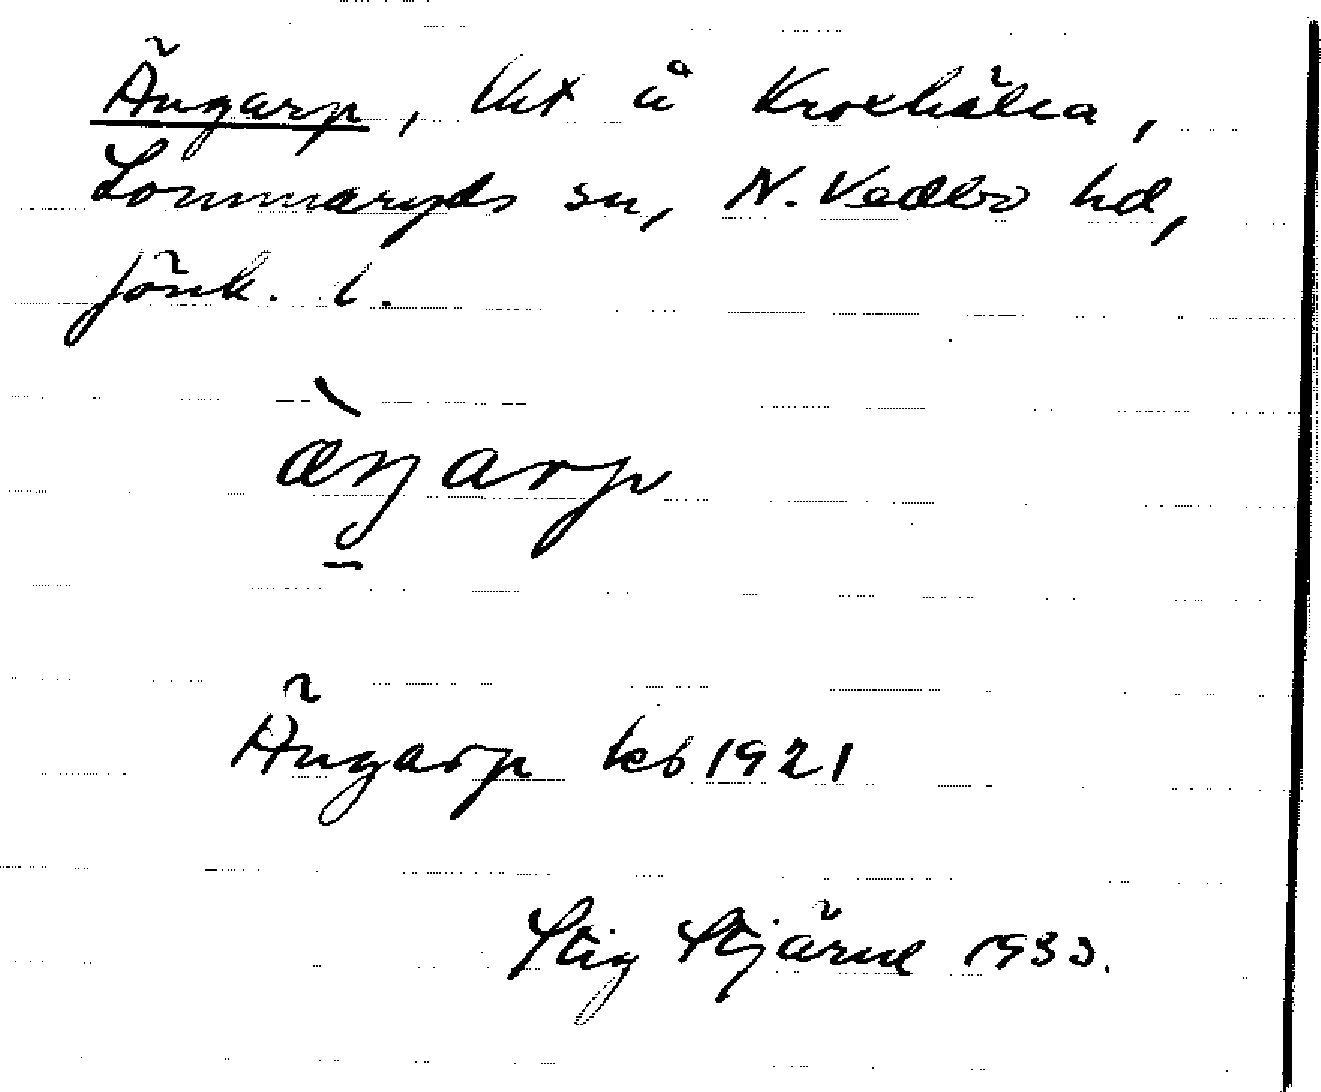 Ängarp, Uit å Krokhälla,
Lommaryds sn, N. Vedbo hd,
Jönk. l.
æ̀ŋarp
Ängarp kb 1921
Stig Stjärne 1933.